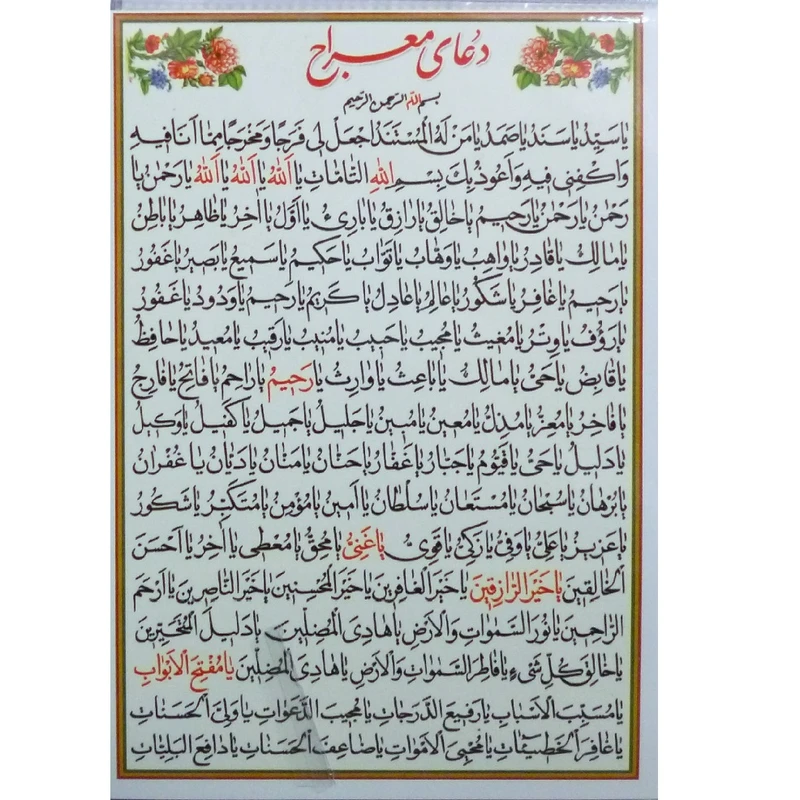 دعای معراج
بسم الله الرحمن الرحیم
یا سَیِّدُ یا سَنَدُ یا صَمَدُ یا مَنْ لَهُ الْمُسْتَنَدُ اجْعَلْ لی فَرَجًا وَ مَخْرَجًا مِمّا اَنَا فیهِ
وَ اکْفِنی فیهِ وَ اَعُوذُ بِکَ بِسْمِ اللّٰهِ التّامّاتِ یا اَللّٰهُ یا اَللّٰهُ یا اَللّٰهُ یا رَحْمٰنُ یا
رَحْمٰنُ یا رَحْمٰنُ یا رَحیمُ یا خالِقُ یا رازِقُ یا بارِیءُ یا اَوَّلُ یا اٰخِرُ یا ظاهِرُ یا باطِنُ
یا مالِکُ یا قادِرُ یا واهِبُ یا وَهّابُ یا تَوّابُ یا حَکیمُ یا سَمیعُ یا بَصیرُ یا غَفُورُ
یا رَحیمُ یا غافِرُ یا شَکُورُ یا عالِمُ یا عادِلُ یا کَریمُ یا رَحیمُ یا وَدُودُ یا غَفُورُ
یا رَؤُفُ یا وِتْرُ یا مُغیثُ یا مُجیبُ یا حَبیبُ یا مُنیبُ یا رَقیبُ یا مُعیدُ یا حافِظُ
یا قابِضُ یا حَیُّ یا مالِکُ یا باعِثُ یا وارِثُ یا رَحیمُ یا راحِمُ یا فاتِحُ یا فارِجُ
یا فاخِرُ یا مُعِزُّ یا مُذِلُّ یا مُعینُ یا مُبینُ یا جَلیلُ یا جَمیلُ یا کَفیلُ یا وَکیلُ
یا دَلیلُ یا حَیُّ یا قَیُّومُ یا جَبّارُ یا غَفّارُ یا حَنّانُ یا مَنّانُ یا دَیّانُ یا غُفْرانُ
یا بُرْهانُ یا سُبْحانُ یا مُسْتَعانُ یا سُلْطانُ یا اَمینُ یا مُؤْمِنُ یا مُتَکَبِّرُ یا شَکُورُ
یا عَزیزُ یا عَلِیُّ یا وَفِیُّ یا زَکِیُّ یا قَوِیُّ یا غَنِیُّ یا مُحِقُّ یا مُعْطی یا اٰخِرُ یا اَحْسَنَ
الْخالِقینَ یا خَیْرَ الرّازِقینَ یا خَیْرَ الْغافِرینَ یا خَیْرَ الْمُحْسِنینَ یا خَیْرَ النّاصِرینَ یا اَرْحَمَ
الرّاحِمینَ یا نُورَ السَّمٰواتِ وَالْاَرْضِ یا هادِیَ الْمُضِلّینَ یا دَلیلَ الْمُتَحَیِّرینَ
یا خالِقَ کُلِّ شَیْءٍ یا فاطِرَ السَّمٰواتِ وَالْاَرْضِ یا هادِیَ الْمُضِلّینَ یا مُفَتِّحَ الْاَبْوابِ
یا مُسَبِّبَ الْاَسْبابِ یا رَفیعَ الدَّرَجاتِ یا مُجیبَ الدَّعَواتِ یا وَلِیَّ الْحَسَناتِ
یا غافِرَ الْخَطیٓئاتِ یا مُحْیِیَ الْاَمْواتِ یا ضاعِفَ الْحَسَناتِ یا دافِعَ الْبَلِیّاتِ